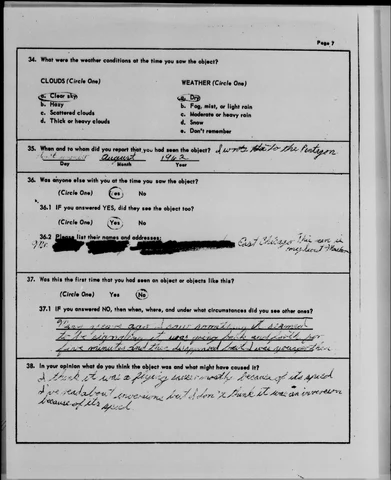 Page 7
34. What were the weather conditions at the time you saw the object?
CLOUDS (Circle One) WEATHER (Circle One)
a. Clear sky a. Dry
b. Hazy b. Fog, mist, or light rain
c. Scattered clouds c. Moderate or heavy rain
d. Thick or heavy clouds d. Snow
e. Don't remember
35. When and to whom did you report that you had seen the object? I wrote to the Pentagon
August 1962
Day Month Year
36. Was anyone else with you at the time you saw the object?
(Circle One) Yes No
36.1 IF you answered YES, did they see the object too?
(Circle One) Yes No
36.2 Please list their names and addresses:
East Chicago This con is
37. Was this the first time that you had seen an object or objects like this?
(Circle One) Yes No
37.1 IF you answered NO, then when, where, and under what circumstances did you see other ones?
years ago I saw something it seemed
to be it was going back and forth for
five minutes and then disappeared but I was younger then
38. In your opinion what do you think the object was and what might have caused it?
I think it was a flying saucer mostly because of its speed
I've read about inversions but I don't think it was an inversion
because of its speed